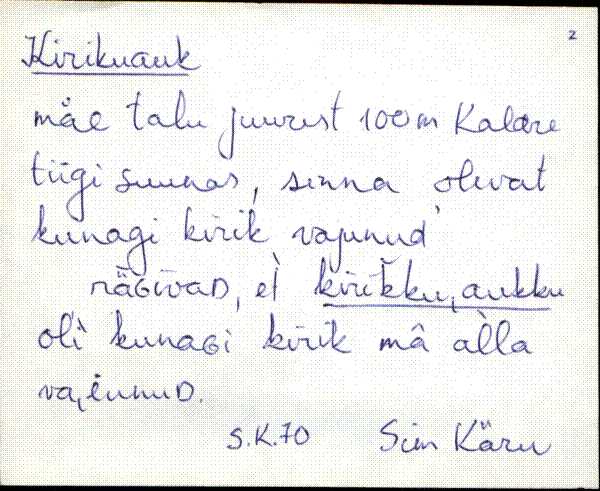 2
Kirikuauk
mäe talu juurest 100m Kalare
tiigi suunas, sinna olevat
kunagi kirik vajunud
räGivaD, eì kirìkku, aukku
olì kunaGi kirik mâ àlla
va,iunuD.
S.K.70 Siim Käru